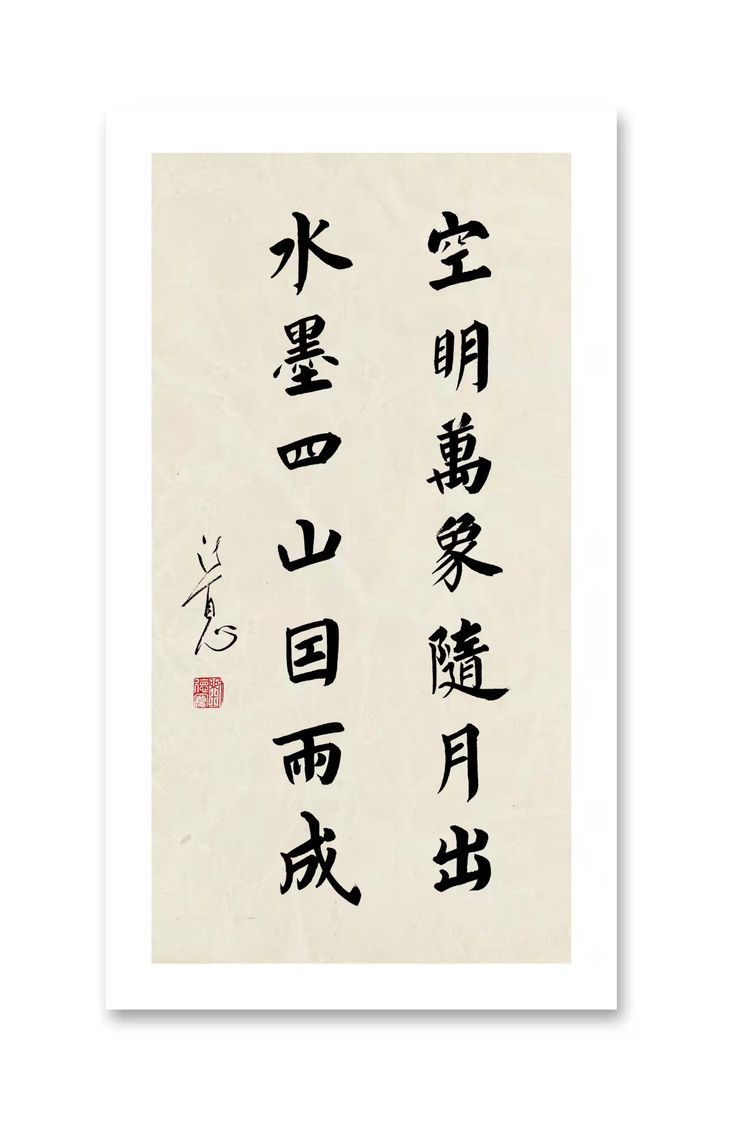 空明萬象隨月出
水墨四山囙雨成